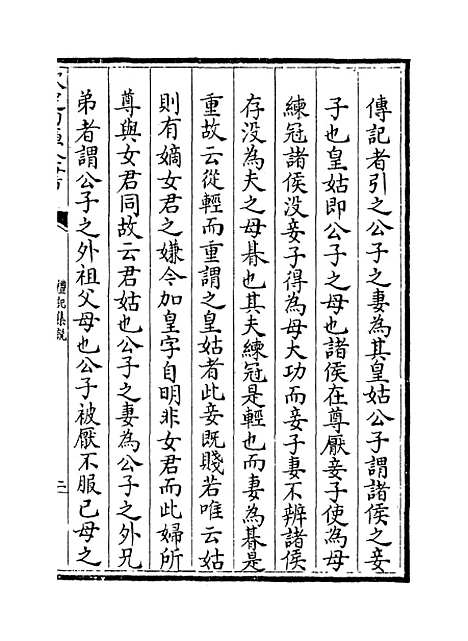 傳記者引之公子之妻為其皇姑公子謂諸侯之妾
子也皇姑即公子之母也諸侯在尊厭妾子使為母
練冠諸侯没妾子得為母大功而妾子妻不辨諸侯
存没為夫之母朞也其夫練冠是輕也而妻為朞是
重故云從輕而重謂之皇姑者此妾既賤若唯云姑
則有嫡女君之嫌今加皇字自明非女君而此婦所
尊與女君同故云君姑也公子之妻為公子之外兄
弟者謂公子之外祖父母也公子被厭不服己母之
禮記集說
二